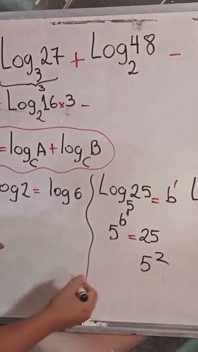 Log₃27 + Log₂48 −
3
Log₂16×3 −
= log_C A + log_C B
og2 = log6
Log₅25 = b'
5^b' = 25
5²